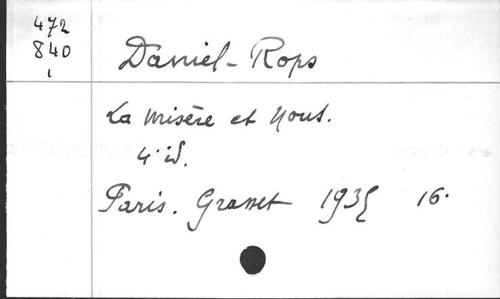 472
840
1
Daniel-Rops
La Misère et Nous.
4. éd.
Paris. Grasset 1935 16.